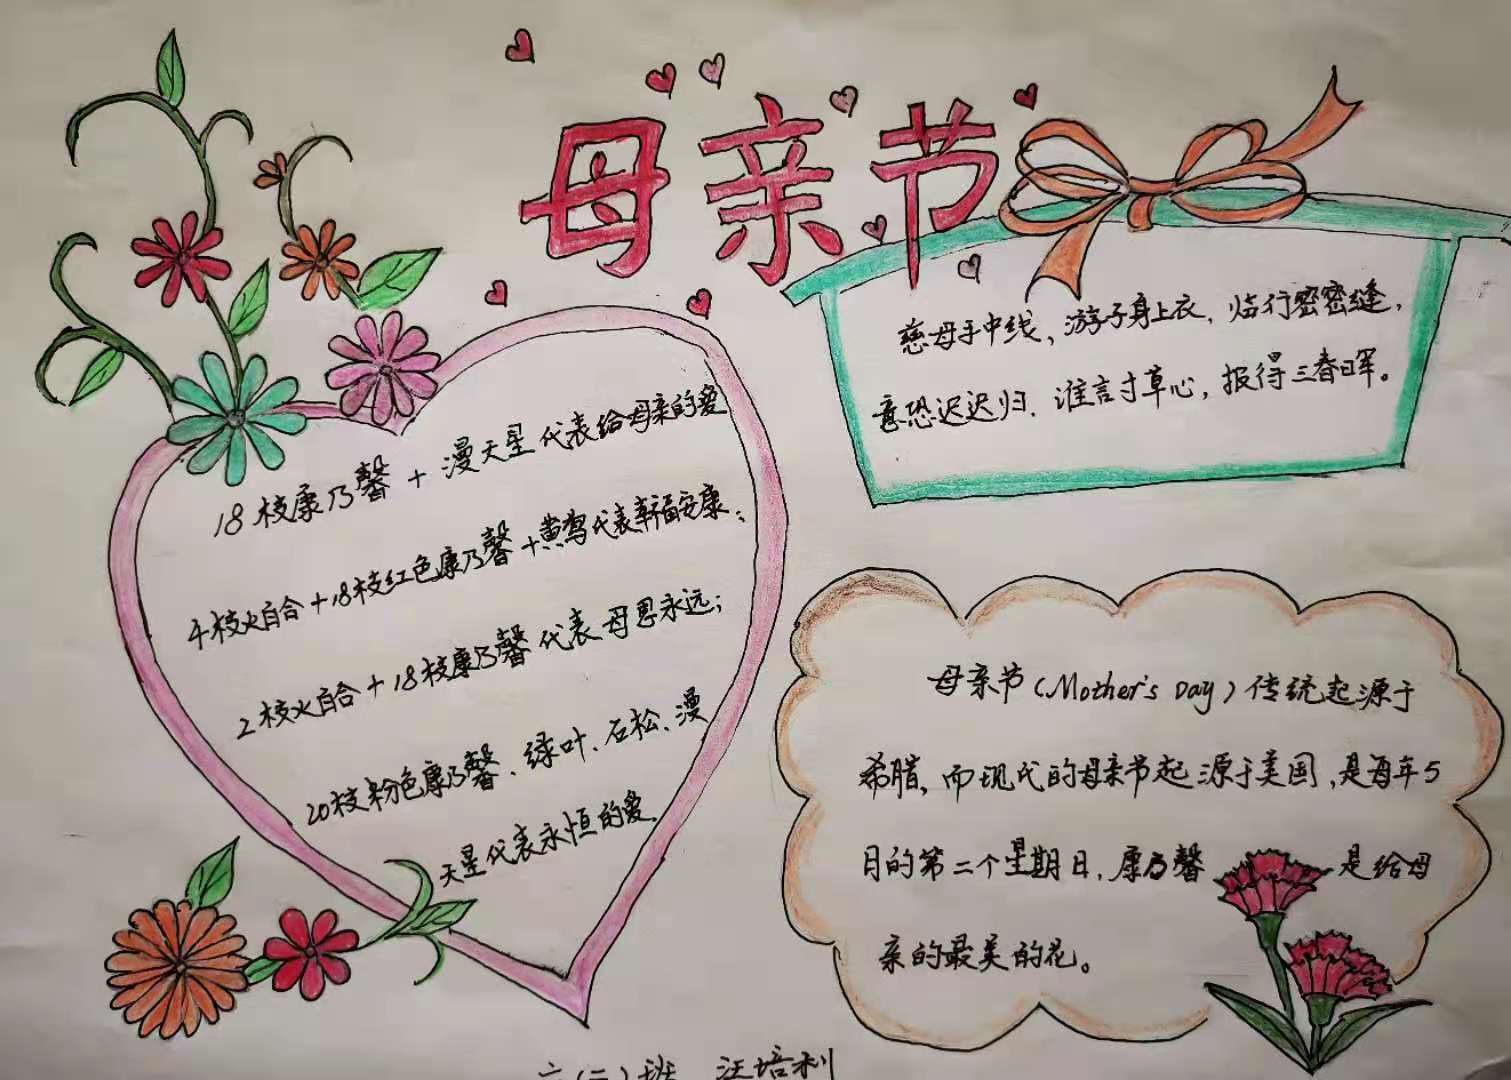 母亲节
慈母手中线，游子身上衣，临行密密缝，
意恐迟迟归．谁言寸草心，报得三春晖。
18枝康乃馨＋漫天星代表给母亲的爱
4枝火百合＋18枝红色康乃馨＋黄莺代表幸福安康；
2枝火百合＋18枝康乃馨代表母恩永远；
20枝粉色康乃馨、绿叶、石松、漫
天星代表永恒的爱．
母亲节（Mother's Day）传统起源于
希腊，而现代的母亲节起源于美国，是每年5
月的第二个星期日，康乃馨是给母
亲的最美的花。
六（二）班 汪培利